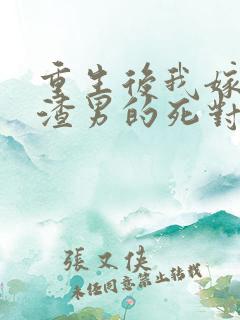 重生後我嫁
渣男的死對
張又俠
未經同意禁止轉載